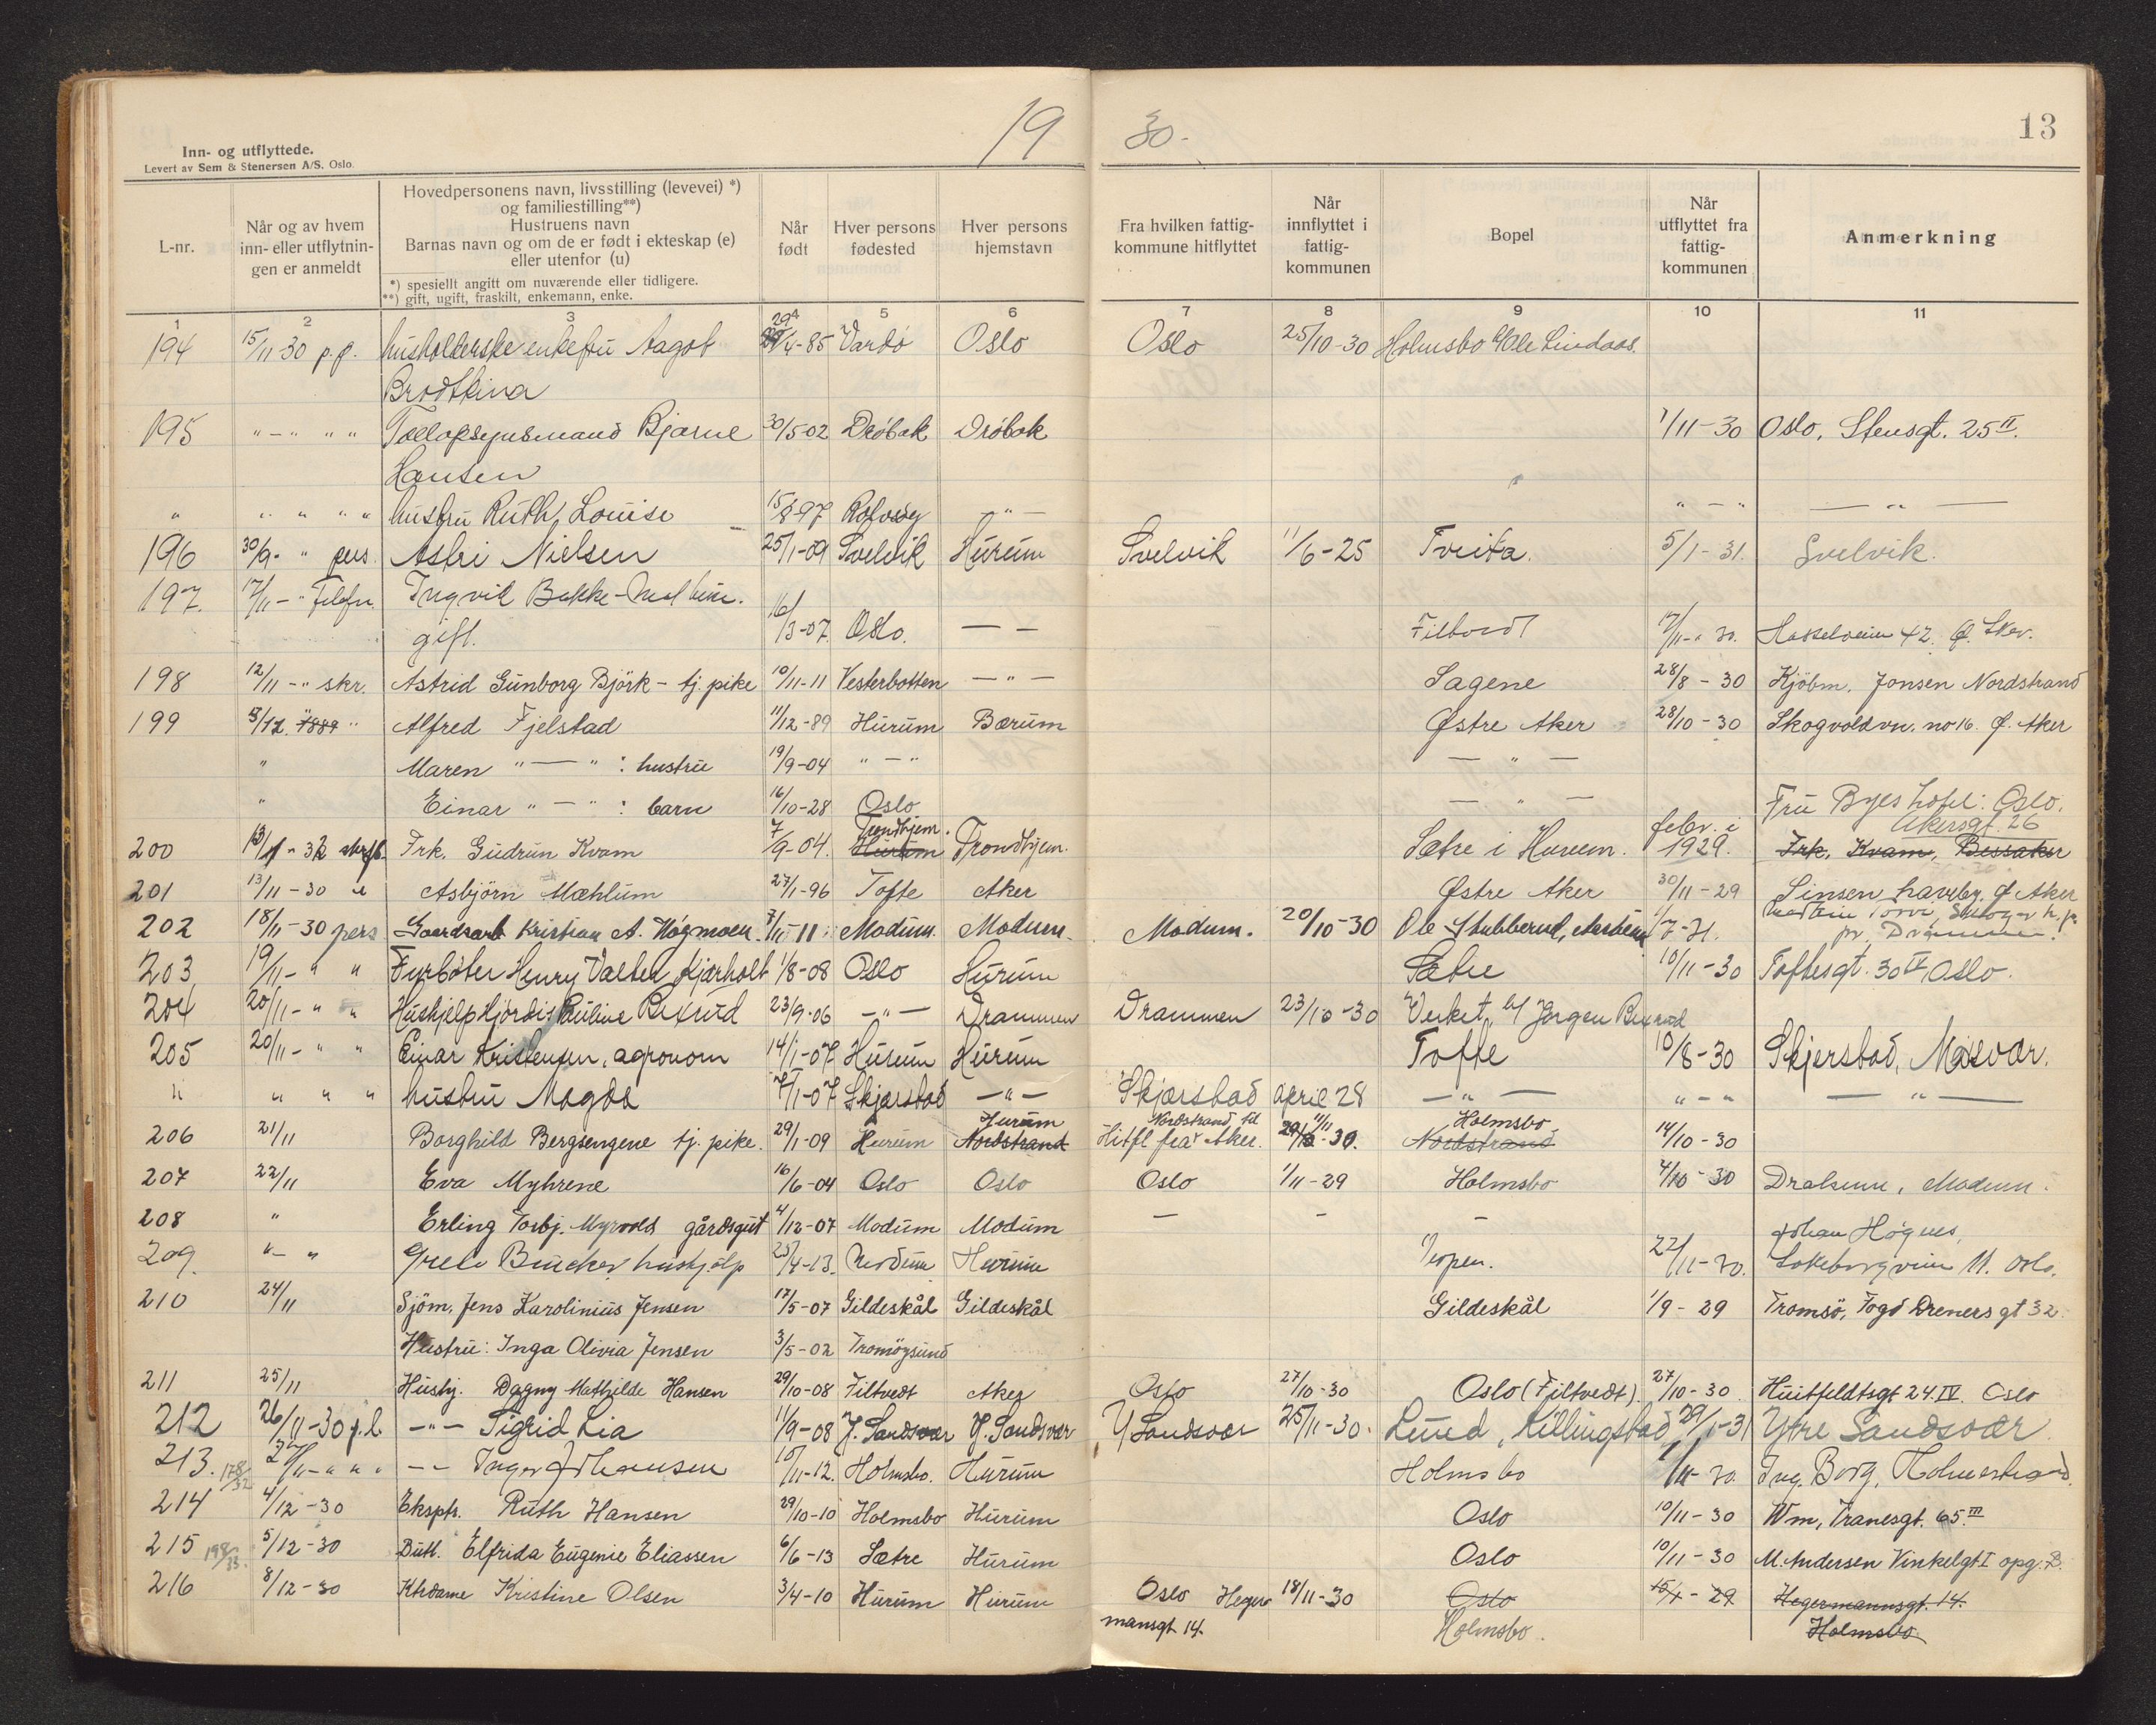 19 30-
13
Inn- og utflyttede.
Levert av Sem & Stenersen A/S. Oslo.
L-nr. | Når og av hvem inn- eller utflytnin-gen er anmeldt | Hovedpersonens navn, livsstilling (levevei) *) og familiestilling**) Hustruens navn Barnas navn og om de er født i ekteskap (e) eller utenfor (u) *) spesiellt angitt om nuværende eller tidligere. **) gift, ugift, fraskilt, enkemann, enke. | Når født | Hver persons fødested | Hver persons hjemstavn | Fra hvilken fattig-kommune hitflyttet | Når innflyttet i fattig-kommunen | Bopel | Når utflyttet fra fattig-kommunen | Anmerkning
1 2 3 4 5 6 7 8 9 10 11
194 15/11-30 p.p. husholderske enkefru Aagot 29/4-85 Vardø Oslo Oslo 25/10-30 Holmsbo Ole Lindaas.
Brodtkina
195 " - " " " Tollopsynsmand Bjarne 30/5-02 Drøbak Drøbak 1/11-30 Oslo, Stensgt. 25 II.
Hansen
" " " " " hustru Ruth, Louise 15/8 97 Rolvsøy - " - " - " - " -
196 30/9- " pers. Astri Nielsen 25/1-09 Svelvik Hurum Svelvik 11/6-25 Tveita. 5/1-31. Svelvik.
197. 17/11 - " Telefn. Ingvil Bakke
gift. 16/3-07 Oslo. — — Filtvedt 17/11 - " 30. Hasselveien 42. Ø. Aker.
198 12/11 - " skr. Astrid Gunborg Björk - tj. pike 10/11-11 Vesterbotten - " - Sagene 28/8 - 30 Kjöbm. Jonsen Nordstrand
199 5/12. 1889 " Alfred Fjelstad 11/12-89 Hurum Bærum Østre Aker 28/10-30 Skogvoldvn. no 16. Ø. Aker
" Maren " — " : hustru 19/9-04 " - " — " —
" Einar " — " : barn 16/10-28 Oslo — " — Fru Byes hotel: Oslo.
Trondhjem. febr. i Akersgt. 26
200 13/1 - 32 Frk. Gudrun Kvam 7/9-04. Hurum Trondhjem. Sætre i Hurum. 1929. Frk. Kvam, Bessaker
201 13/11-30 " Asbjörn Mæhlum 27/1-96 Tofte Aker Østre Aker 30/11-29 Sinsen haveby. Ø. Aker
202 18/11-30 pers Gaardsarb Kristian A. Høgmoen 7/11-11 Modum Modum. Modum. 20/10-30 Ole Stubberud, 1/7-31.
pr. Drammen.
203 19/11 - " " Fyrbøter Henry Valter Kjærholt 1/8-08 Oslo Hurum Sætre 10/11-30 Toftesgt. 30 IV, Oslo.
204 20/11 - " " Hushjelp Hjørdis Pauline Rixrud 23/9-06 - " - Drammen Drammen 23/10-30 Verket, b/ Jørgen
205 20/11 - " " Einar Kristensen, agronom 14/1-07 Hurum Hurum Tofte 10/8-30 Skjerstad, Misvær.
" " " " hustru Magda 7/1-07 Skjærstad - " - Skjærstad april 28 - " - " - " — " —
Hurum Nordstrand til 11/11 Holmsbo
206 21/11 Borghild Bergsengene tj. pike. 29/1-09 Hurum Nordstrand Hitfl fra Aker. 29/10-30. Nordstrand 14/10-30
207 22/11 Eva Myhrene 16/6-04 Oslo Oslo Oslo 1/11-29 Holmsbo 4/10-30 Modum.
208 " Erling Torbj. Myrvold gårdsgut 4/12-07 Modum Modum — - - Johan
209. " - " Grete Bücker hushjelp 25/4-13. Modum Hurum 22/11-30. 11. Oslo.
210 24/11 Sjöm. Jens Karolinius Jensen 17/5-07 Gildeskål Gildeskål Gildeskål 1/9-29 Tromsö, Fogd Dreners gt 32.
Hustru: Inga Olivia Jensen 3/5-02 Tromöysund
211 25/11 Hushj. Dagny Mathilde Hansen 29/10-08 Filtvedt Aker Oslo 27/10-30 Oslo (Filtvedt). 27/10-30 Huitfeldtsgt 24. IV. Oslo
212 26/11-30 p.l. - " - Sigrid Lia 11/9-08 Y. Sandsvær Y. Sandsvær Y Sandsvær 25/11-30. Lund, Killingstad 29/1-31 Ytre Sandsvær.
213. 178/32 27/11 - " " " - - Inger Johansen 10/11-12. Holmsbo. Hurum Holmsbo 1/11-30. Ing. Borg, Holmestrand.
214 4/12-30 Ekspts. Ruth Hansen 29/10-10 Holmsbo Hurum Oslo 10/11-30 Wm, Tranesgt. 65. III
215 198/33. 5/12-30 Butl. Elfrida Eugenie Eliassen 6/6-13 Sætre Hurum Oslo 10/11-30 M. Andersen Vinkelgt. I opg. B.
216 8/12-30 Khdame Kristine Olsen 3/4-10 Hurum Hurum Oslo Heger- 18/11-30 Oslo 15/1-29 Hegermannsgt. 14.
mansgt 14. Holmsbo. Holmsbo